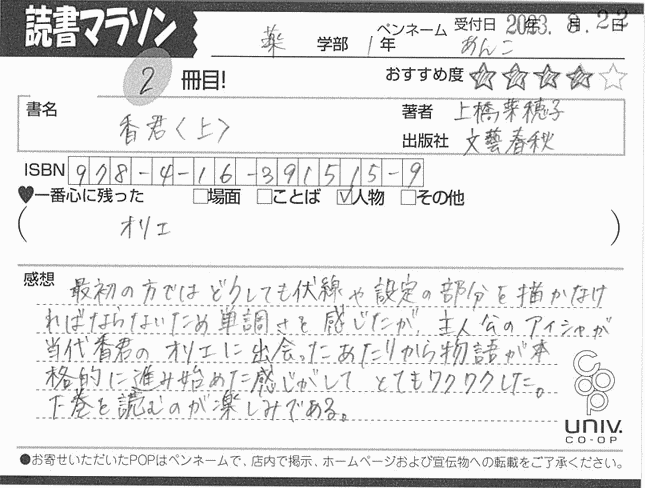 読書マラソン
薬 学部 1年 ペンネーム あんこ 受付日 2023.8.22
2 冊目!
おすすめ度 ★★★★☆
書名 香君〈上〉
著者 上橋菜穂子
出版社 文藝春秋
ISBN 978-4-16-391515-9
♥一番心に残った □場面 □ことば ☑人物 □その他
(オリエ)
感想
最初の方ではどうしても伏線や設定の部分を描かなけ
ればならないため単調さを感じたが、主人公のアイシャが
当代香君のオリエに出会ったあたりから物語が本
格的に進み始めた感じがしてとてもワクワクした。
下巻を読むのが楽しみである。
coop
UNIV.
CO-OP
●お寄せいただいたPOPはペンネームで、店内で掲示、ホームページおよび宣伝物への転載をご了承ください。